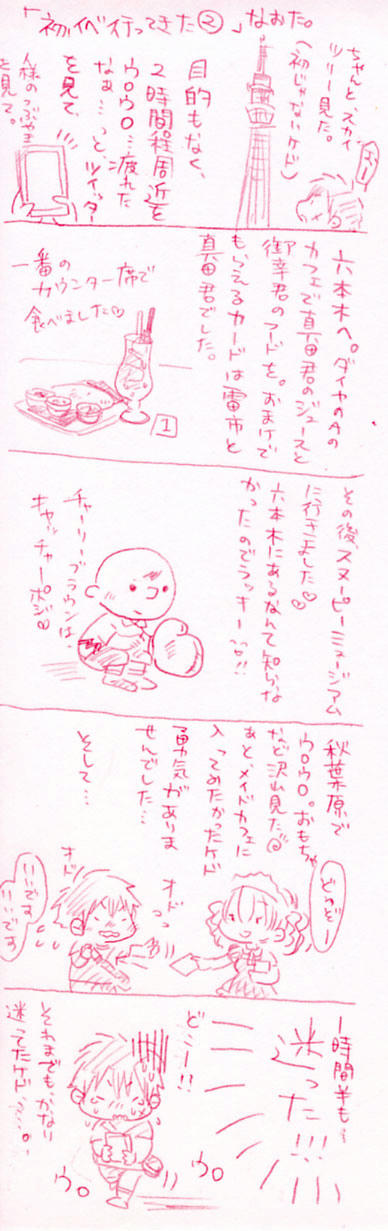 「初イベ行ってきた②」なおた。
ちゃんと、スカイ
ツリー見た。
(初じゃないケド)
目的もなく、
2時間程周辺を
ウロウロ…疲れた
なぁ…っと、ツイッター
を見て、
人様のつぶやき
を見て。
六本木へ。ダイヤのAの
カフェで真田君のジュースと
御幸君のフードを。おまけで
もらえるカードは雷市と
真田君でした。
一番の
カウンター席で
食べました♡
1
その後、スヌーピーミュージアム
に行きました♡
六本木にあるなんて知らな
かったのでラッキー!!
チャーリーブラウンは、
キャッチャーポジ♡
秋葉原で
ウロウロ。おもちゃ
など沢山見た
あと、メイドカフェに
入ってみたかったケド
勇気がありま
せんでした…
そして…
どうぞー
オド
オド
いいです
いいです
1時間半も…
迷った!!!
どこー!!
ウロ
ウロ
それまでも、かなり
迷ってたケド…。